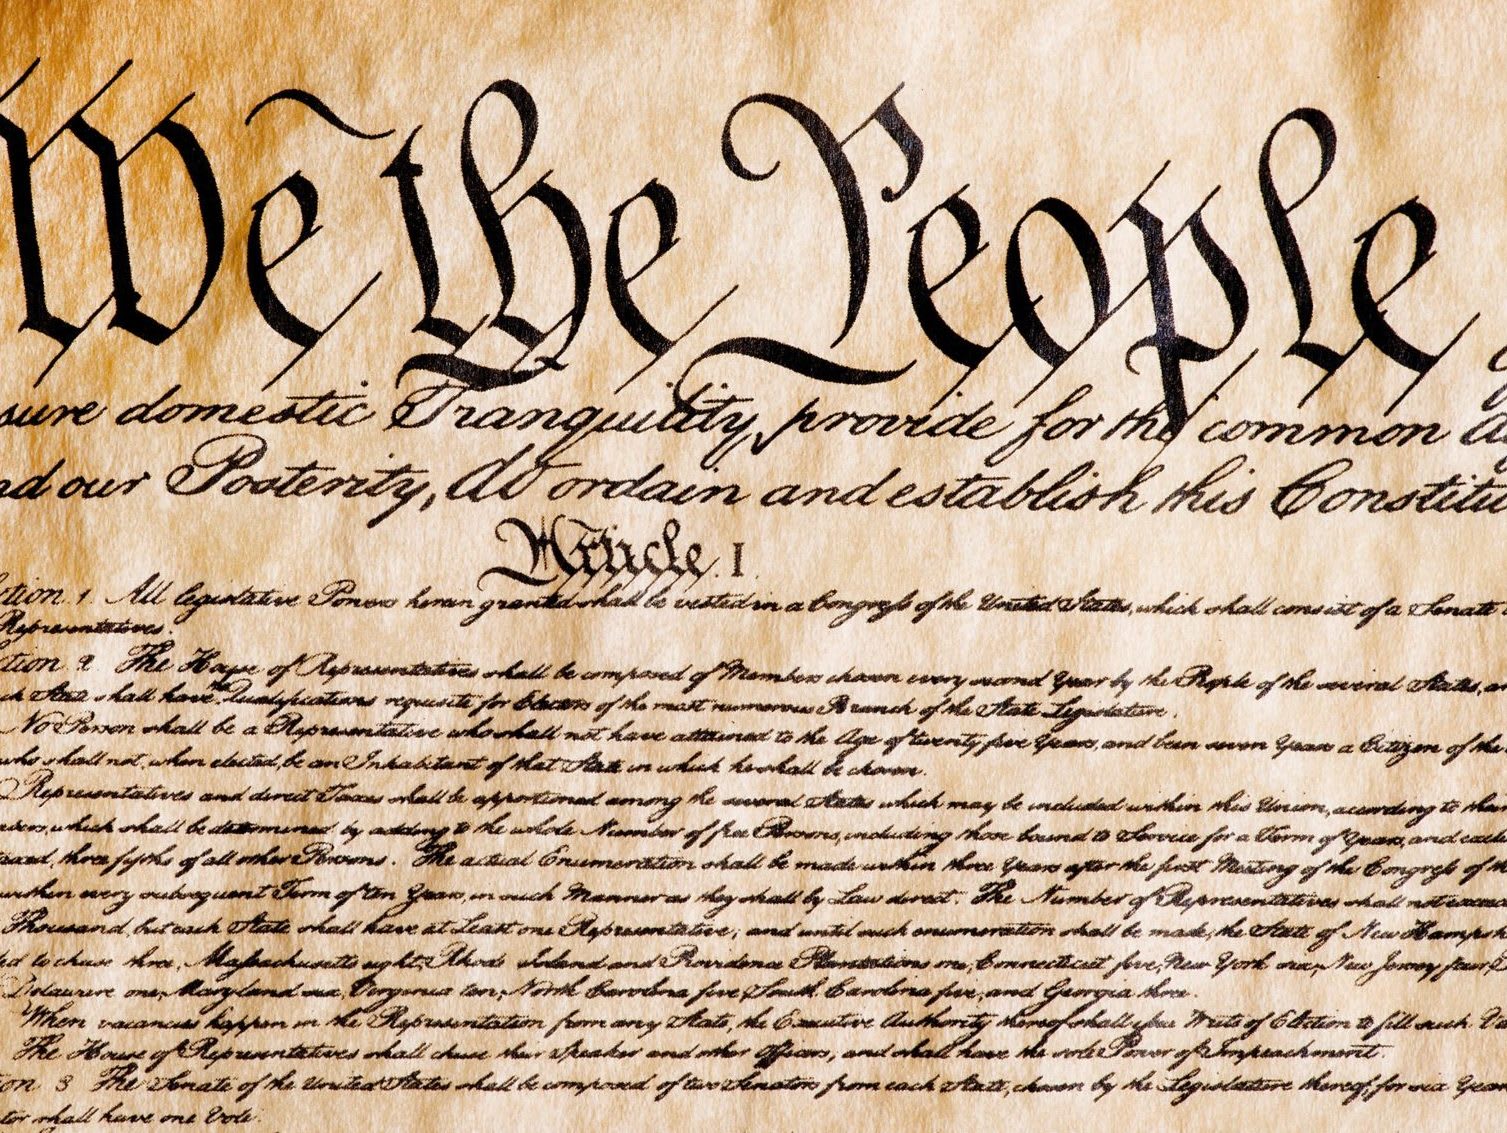 We the People
sure domestic Tranquility, provide for the common
our Posterity, do ordain and establish this
Article. I.
1. All legislative Powers herein granted shall be vested in a Congress of the United States, which shall consist of a Senate
Representatives.
2. The House of Representatives shall be composed of Members chosen every second Year by the People of the several States,
State shall have the Qualifications requisite for Electors of the most numerous Branch of the State Legislature.
No Person shall be a Representative who shall not have attained to the Age of twenty five Years, and been seven Years a Citizen of the
who shall not, when elected, be an Inhabitant of that State in which he shall be chosen.
Representatives and direct Taxes shall be apportioned among the several States which may be included within this Union, according to their
which shall be determined by adding to the whole Number of free Persons, including those bound to Service for a Term of Years, and
three fifths of all other Persons. The actual Enumeration shall be made within three Years after the first Meeting of the Congress of
within every subsequent Term of ten Years, in such Manner as they shall by Law direct. The Number of Representatives shall not
Thousand, but each State shall have at Least one Representative; and until such enumeration shall be made, the State of New
to chuse three, Massachusetts eight, Rhode Island and Providence Plantations one, Connecticut five, New York six, New Jersey four,
Delaware one, Maryland six, Virginia ten, North Carolina five, South Carolina five, and Georgia three.
When vacancies happen in the Representation from any State, the Executive Authority thereof shall issue Writs of Election to fill such
The House of Representatives shall chuse their Speaker and other Officers; and shall have the sole Power of Impeachment.
3 The Senate of the United States shall be composed of two Senators from each State, chosen by the Legislature thereof, for six
shall have one Vote.